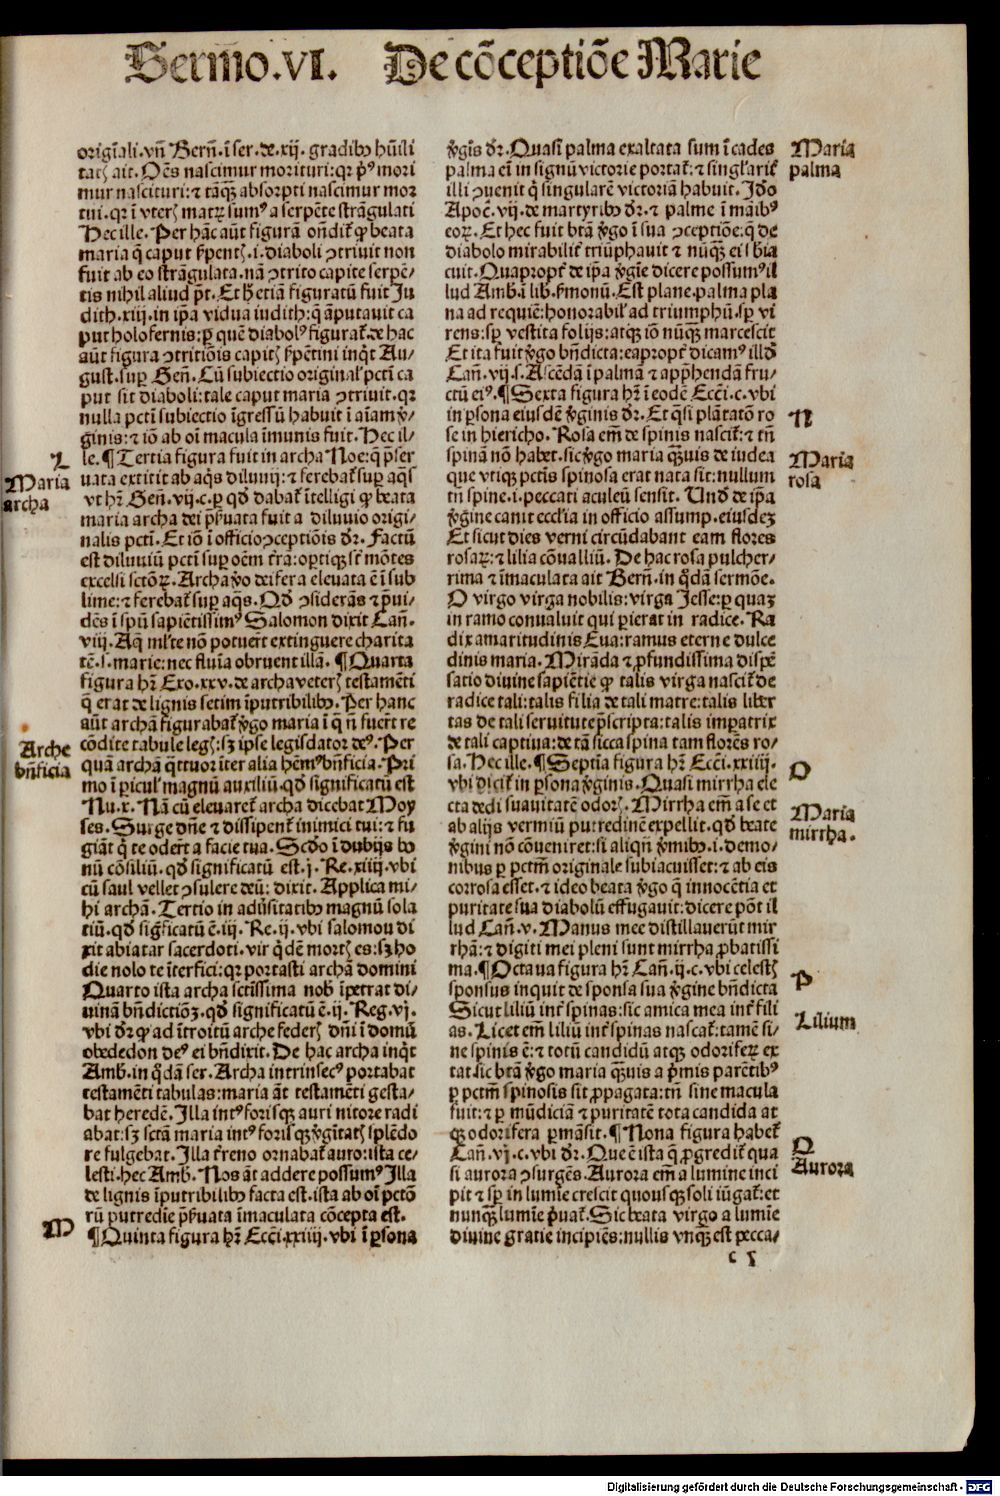 Sermo.VI. De cõceptiõe Marie
origĩali. vñ Bern̄. ĩ ser. de. xij. gradibꝰ hũili
tatꝭ ait. Oẽs nascimur morituri: qꝛ pꝰ mori
mur nascituri: ⁊ tãqꝫ absorpti nascimur mor
tui. qꝛ ĩ vterꝭ matrꝝ sumꝰ a serpẽte strãgulati
Hec ille. Per hãc aũt figurã oñdit̃ ꝙ beata
maria q̃ caput ẜpentꝭ. i. diaboli ↄtriuit non
fuit ab eo strãgulata. nã ↄtrito capite serpẽ/
tis nihil aliud p̃t. Et h̃ etiã figuratũ fuit Ju
dith. xiij. in ip̃a vidua iudith: q̃ ãputauit ca
put holofernis: ꝑ quẽ diabolꝰ figurat̃. de hac
aũt figura ↄtritiõis capitꝭ ẜpẽtini inq̃t Au/
gust. suꝑ Gen̄. Cũ subiectio original̕ pctĩ ca
put sit diaboli: tale caput maria ↄtriuit. qꝛ
nulla pctĩ subiectio ĩgressũ habuit ĩ aĩam ꝟ/
ginis: ⁊ iõ ab oĩ macula ĩmunis fuit. Hec il/
le. ¶ Tertia figura fuit in archa Noe: q̃ p̃ser
uata extitit ab aq̃s diluuij: ⁊ ferebat̃ suꝑ aq̃s
vt hr̃ Gen̄. vij. c. ꝑ qđ dabat̃ ĩtelligi ꝙ beata
maria archa dei p̃ẜuata fuit a diluuio origi/
nalis pctĩ. Et iõ ĩ officio ↄceptiõis dr̃. Factũ
est diluuiũ pctĩ suꝑ oẽm t̃rã: oꝑtiqꝫ sĩt mõtes
excelsi sctõꝝ. Archa ꝟo deifera eleuata ẽ ĩ sub
lime: ⁊ ferebat̃ suꝑ aq̃s. Qđ ↄsiderãs ⁊ p̃ui/
dẽs ĩ spũ sapiẽtissimꝰ Salomon dixit Can̄.
viij. Aq̃ ml̕te nõ potuer̃t extinguere charita
tẽ. s. marie: nec fluĩa obruent illã. ¶ Quarta
figura hr̃ Exo. xxv. de archa veterꝭ testamẽti
q̃ erat de lignis setim ĩputribilibꝰ. Per hanc
aũt archã figurabat̃ ꝟgo maria ĩ q̃ ñ fuer̃t re
cõdite tabule legꝭ: sꝫ ipse legisdator deꝰ. Per
quã archã q̃ttuor ĩter alia hẽmꝰ bñficia. Pri
mo ĩ ꝑicul̕ magnũ auxiliũ. qđ significatũ est
Nu. x. Nã cũ eleuaret̃ archa dicebat Moy
ses. Surge dñe ⁊ dissipent̃ inimici tui: ⁊ fu
giãt q̃ te oder̃t a facie tua. Scđo ĩ dubijs bo
nũ cõsiliũ. qđ significatũ est. j. Re. xiiij. vbi
cũ saul vellet ↄsulere deũ: dixit. Applica mi/
hi archã. Tertio in aduẽsitatibꝰ magnũ sola
tiũ. qđ sigr̃ficatũ ẽ. iij. Re. ij. vbi salomou di
xit abiatar sacerdoti. vir q̃dẽ mortꝭ es: sꝫ ho
die nolo te ĩterfici: qꝛ portasti archã domini
Quarto ista archa sctissima nob̃ ĩpetrat di/
uinã bñdictiõꝫ. qđ significatũ ẽ. ij. Reg. vj.
vbi dr̃ ꝙ ad ĩtroitũ arche federꝭ dñi ĩ domũ
obededon deꝰ ei bñdixit. De hac archa inq̃t
Amb. in q̃dã ser. Archa intrinsecꝰ portabat
testamẽti tabulas: maria aũt testamẽti gesta/
bat heredẽ. Illa intꝰ forisqꝫ auri nitore radi
abat: sꝫ sctã maria intꝰ forisqꝫ ꝟgĩtatꝭ splẽdo
re fulgebat. Illa t̃reno ornabat̃ auro: ista ce/
lesti. hec Amb. Nos aũt addere possumꝰ Illa
de lignis ĩputribilibꝰ facta est. ista ab oĩ pctõ
rũ putredie p̃ẜuata ĩmaculata cõcepta est.
¶ Quinta figura hr̃ Ecci. xxiiij. vbi ĩ ꝑsona
ꝟgĩs dr̃. Quasi palma exaltata sum ĩ cades
palma em̃ in signũ victorie portat̃: ⁊ singl̕arit̃
illi ↄuenit q̃ singularẽ victoriã habuit. Jđo
Apoc̃. vij. de martyribꝰ dr̃. ⁊ palme ĩ maĩbꝰ
eoꝝ. Et hec fuit btã ꝟgo ĩ sua ↄceptiõe: q̃ de
diabolo mirabilit̃ triũphauit ⁊ nũqꝫ ei sb̃ia
cuit. Quapropt̃ de ip̃a ꝟgĩe dicere possumꝰ il
lud Amb. ĩ lib. ẜmonũ. Est plane palma pla
na ad requiẽ: honorabil̕ ad triumphũ. sꝑ vi
rens: sꝑ vestita folijs: atqꝫ iõ nũqꝫ marcescit
Et ita fuit ꝟgo bñdicta: eapropt̃ dicamꝰ illđ
Can̄. vij. s. Ascẽdã ĩ palmã ⁊ apphẽdã fru/
ctũ eiꝰ. ¶ Sexta figura hr̃ ĩ eodẽ Ecci. c. vbi
in ꝑsona eiusdẽ ꝟginis dr̃. Et q̃si plãtatõ ro
se in hiericho. Rosa em̃ de spinis nascit̃: ⁊ tñ
spinã nõ habet. sic ꝟgo maria q̃uis de iudea
que vtiqꝫ pctĩs spinosa erat nata sit: nullum
tñ spine. i. peccati aculeũ sensit. Unđ de ip̃a
ꝟgine canit eccl̕ia in officio assump. eiusdeꝫ
Et sicut dies verni circũdabant eam flores
rosaꝝ: ⁊ lilia cõualliũ. De hac rosa pulcher/
rima ⁊ ĩmaculata ait Bern̄. in q̃dã sermõe.
O virgo virga nobilis: virga Jesse: ꝑ quaꝫ
in ramo conualuit qui ꝑierat in radice. Ra
dix amaritudinis Eua: ramus eterne dulce
dinis maria. Mirãda ⁊ ꝓfundissima dispẽ
satio diuine sapiẽtie ꝙ talis virga nascit̃ de
radice tali: talis filia de tali matre: talis liber
tas de tali seruitute p̃scripta: talis imꝑatrix
de tali captiua: de tã sicca spina tam florẽs ro/
sa. Hec ille. ¶ Septĩa figura hr̃ Ecci. xxiiij.
vbi dicit̃ in ꝑsona ꝟginis. Quasi mirrha ele
cta dedi suauitatẽ odorꝭ. Mirrha em̃ a se et
ab alijs vermiũ putredinẽ expellit. qđ beate
ꝟgini nõ cõueniret: si aliqñ ꝟmibꝰ. i. demo/
nibus ꝑ pctm̃ originale subiacuisset: ⁊ ab eis
corrosa esset. ⁊ ideo beata ꝟgo q̃ innocẽtia et
puritate sua diabolũ effugauit: dicere põt il
lud Can̄. v. Manus mee distillauerũt mir
rhã: ⁊ digiti mei pleni sunt mirrha ꝓbatissi
ma. ¶ Octaua figura hr̃ Can̄. ij. c. vbi celestꝭ
sponsus inquit de sponsa sua ꝟgine bñdicta
Sicut liliũ int̃ spinas: sic amica mea int̃ fili
as. Licet em̃ liliũ int̃ spinas nascat̃: tamẽ si/
ne spinis ẽ: ⁊ totũ candidũ atqꝫ odoriferꝝ ex
tat sic btã ꝟgo maria q̃uis a p̃mis parẽtibꝰ
ꝑ pctm̃ spinosis sit ꝓpagata: tñ sine macula
fuit: ⁊ ꝑ mũdiciã ⁊ puritatẽ tota candida at
qꝫ odorifera ꝑmãsit. ¶ Nona figura habet̃
Can̄. vj. c. vbi dr̃. Que ẽ ista q̃ ꝓgredit̃ qua
si aurora ↄsurgẽs. Aurora em̃ a lumine inci
pit ⁊ sꝑ in lumĩe crescit quousqꝫ soli iũgat̃: et
nunqꝫ lumĩe p̃uat̃. Sic beata virgo a lumĩe
diuine gratie incipiẽs: nullis vnqꝫ est pecca/
c 5
L
Maria
archa
Arche
bñficia
M
Maria
palma
N
Maria
rosa
O
Maria
mirrha.
P
Lilium
Q
Aurora
Digitalisierung gefördert durch die Deutsche Forschungsgemeinschaft - DFG